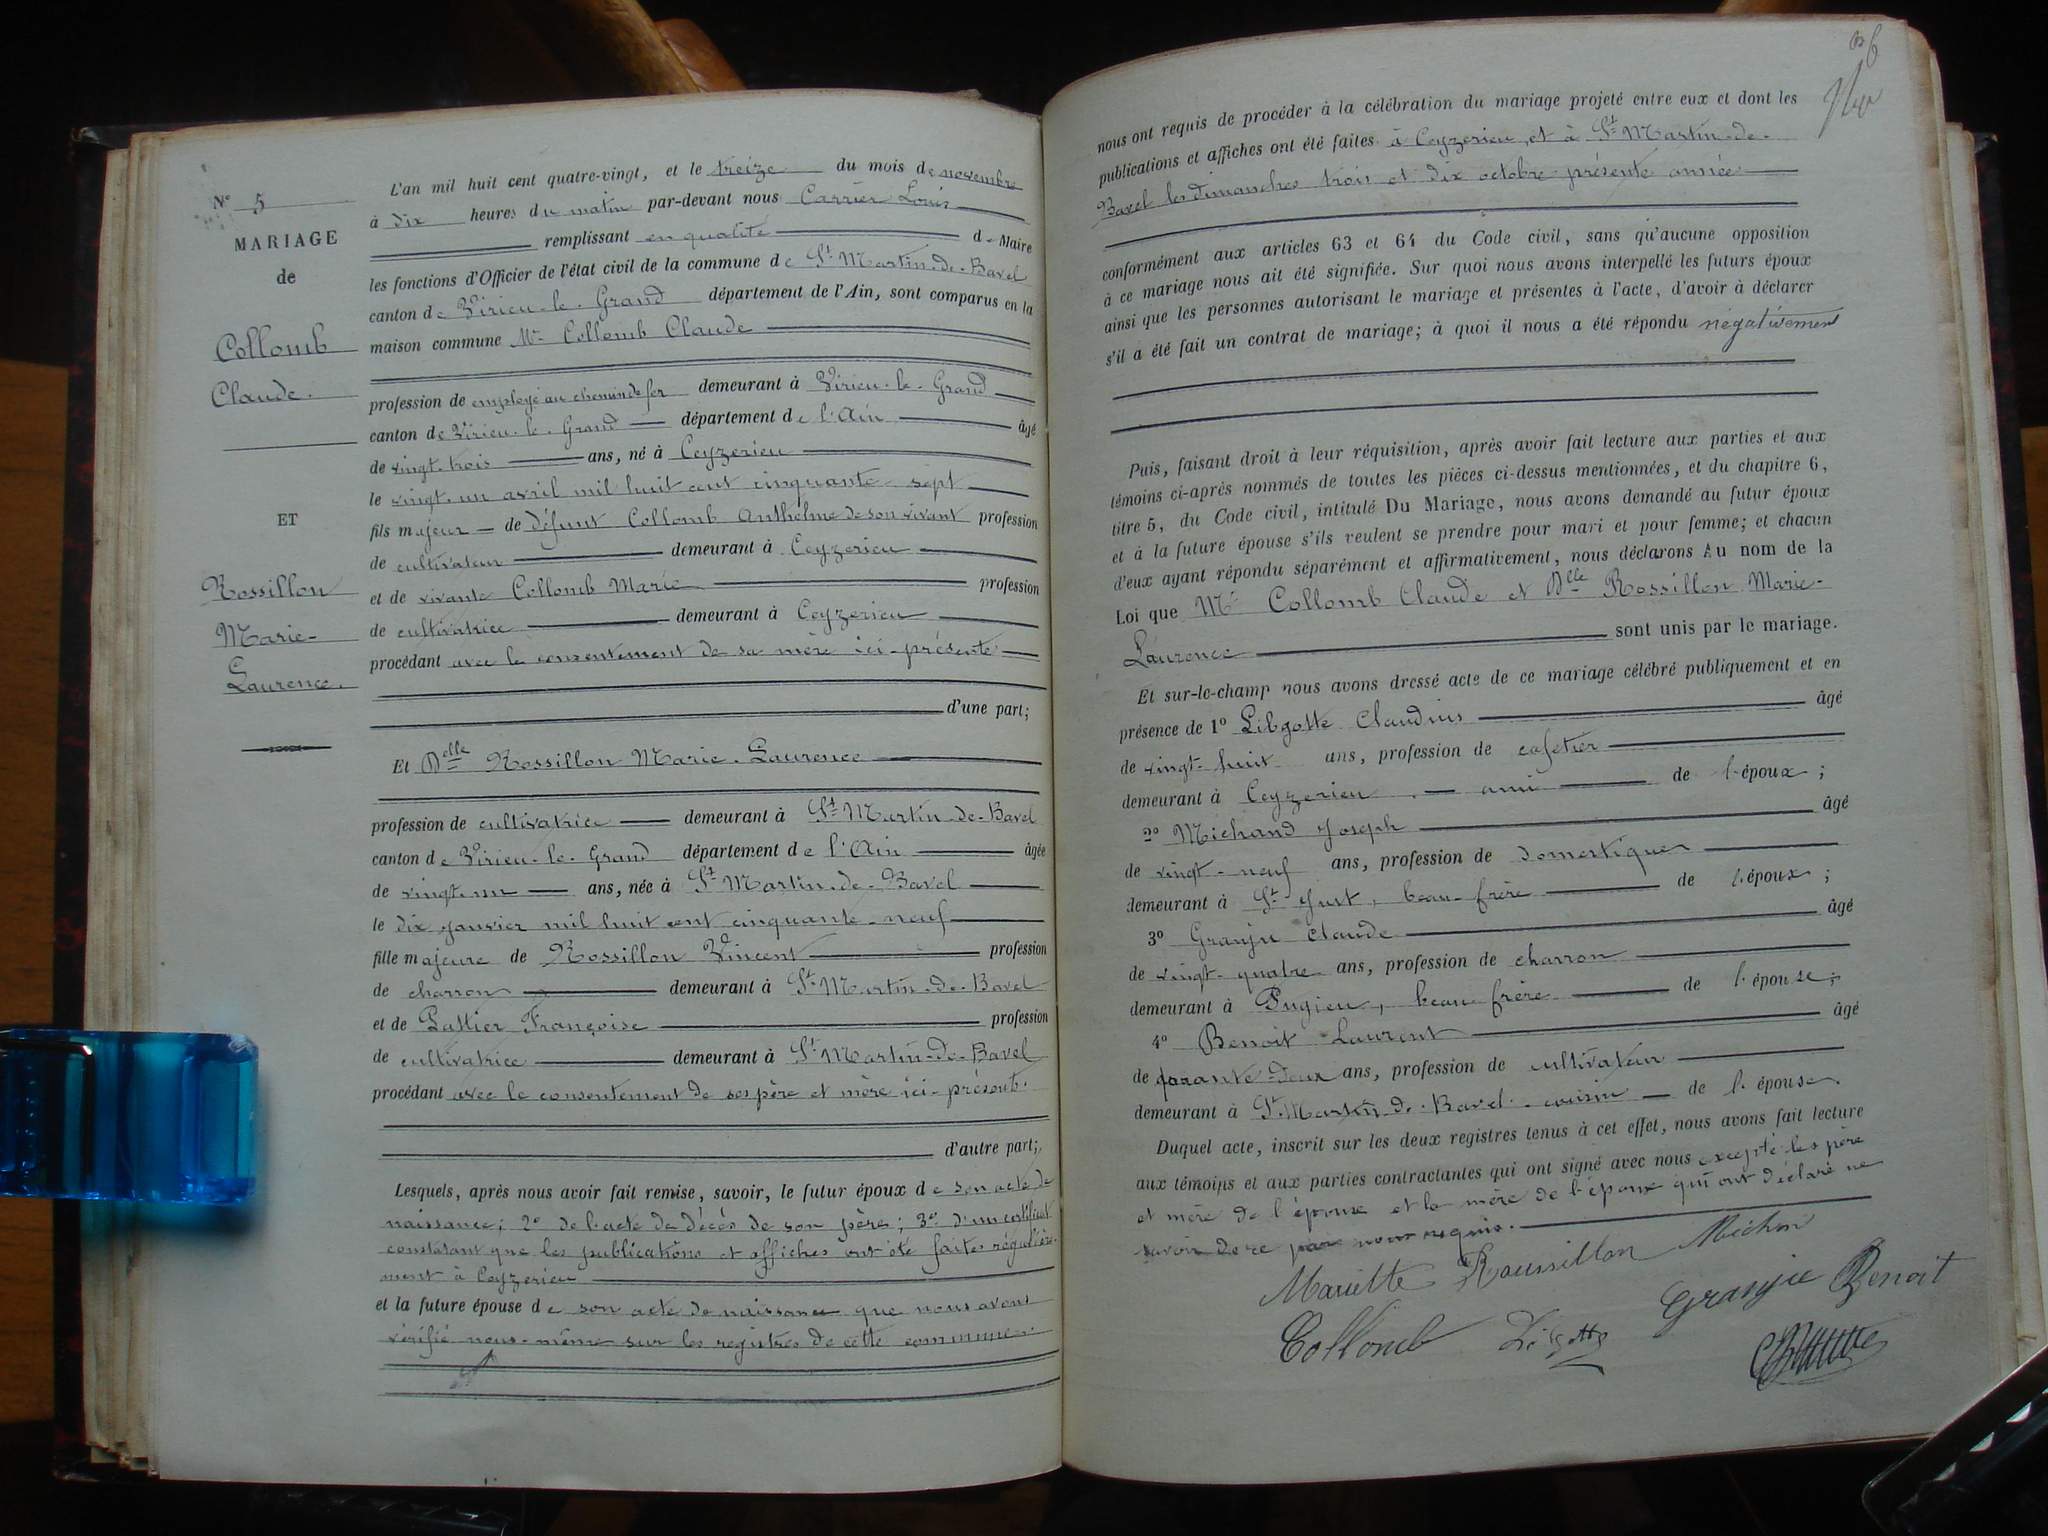 N° 5
MARIAGE
de
Collomb
Claude.
ET
Rossillon
Marie-
Laurence.
L'an mil huit cent quatre-vingt, et le treize du mois de novembre
à dix heures du matin par-devant nous Carrier Louis
remplissant en qualité de Maire
les fonctions d'Officier de l'état civil de la commune de St Martin-de-Bavel
canton de Virieu-le-Grand département de l'Ain, sont comparus en la
maison commune Mr Collomb Claude
profession de employé au chemin de fer demeurant à Virieu-le-Grand
canton de Virieu-le-Grand département de l'Ain âgé
de vingt-trois ans, né à Ceyzerieu
le vingt-un avril mil huit cent cinquante-sept
fils majeur de défunt Collomb Anthelme de son vivant profession
de cultivateur demeurant à Ceyzerieu
et de vivante Collomb Marie profession
de cultivatrice demeurant à Ceyzerieu
procédant avec le consentement de sa mère ici-présente
d'une part;
Et Delle Rossillon Marie-Laurence
profession de cultivatrice demeurant à St Martin-de-Bavel
canton de Virieu-le-Grand département de l'Ain âgée
de vingt-un ans, née à St Martin-de-Bavel
le dix janvier mil huit cent cinquante-neuf
fille majeure de Rossillon Vincent profession
de charron demeurant à St Martin-de-Bavel
et de Lallier Françoise profession
de cultivatrice demeurant à St Martin-de-Bavel
procédant avec le consentement de ses père et mère ici-présents.
d'autre part;
Lesquels, après nous avoir fait remise, savoir, le futur époux de son acte de
naissance; 2° de l'acte de décès de son père; 3° d'un certificat
constatant que les publications et affiches ont été faites régulière-
ment à Ceyzerieu
et la future épouse de son acte de naissance que nous avons
vérifié nous-même sur les registres de cette commune.
6
nous ont requis de procéder à la célébration du mariage projeté entre eux et dont les
publications et affiches ont été faites à Ceyzerieu, et à St Martin-de-
Bavel les dimanches trois et dix octobre présente année
conformément aux articles 63 et 64 du Code civil, sans qu'aucune opposition
à ce mariage nous ait été signifiée. Sur quoi nous avons interpellé les futurs époux
ainsi que les personnes autorisant le mariage et présentes à l'acte, d'avoir à déclarer
s'il a été fait un contrat de mariage; à quoi il nous a été répondu négativement
Puis, faisant droit à leur réquisition, après avoir fait lecture aux parties et aux
témoins ci-après nommés de toutes les pièces ci-dessus mentionnées, et du chapitre 6,
titre 5, du Code civil, intitulé Du Mariage, nous avons demandé au futur époux
et à la future épouse s'ils veulent se prendre pour mari et pour femme; et chacun
d'eux ayant répondu séparément et affirmativement, nous déclarons Au nom de la
Loi que Mr Collomb Claude et Delle Rossillon Marie-
Laurence sont unis par le mariage.
Et sur-le-champ nous avons dressé acte de ce mariage célébré publiquement et en
présence de 1° Libgotte Claudius âgé
de vingt-huit ans, profession de cafetier
demeurant à Ceyzerieu, ami de l'époux;
2° Michaud Joseph âgé
de vingt-neuf ans, profession de domestique
demeurant à St Just, beau-frère de l'époux;
3° Granju Claude âgé
de vingt-quatre ans, profession de charron
demeurant à Pugieu, beau-frère de l'épouse;
4° Benoit Laurent âgé
de quarante-deux ans, profession de cultivateur
demeurant à St Martin-de-Bavel, cousin de l'épouse.
Duquel acte, inscrit sur les deux registres tenus à cet effet, nous avons fait lecture
aux témoins et aux parties contractantes qui ont signé avec nous excepté les père
et mère de l'épouse et la mère de l'époux qui ont déclaré ne
savoir de ce par nous requis.
Mariette Roussillon Michon
Collomb Libgotte Granjue Benoit